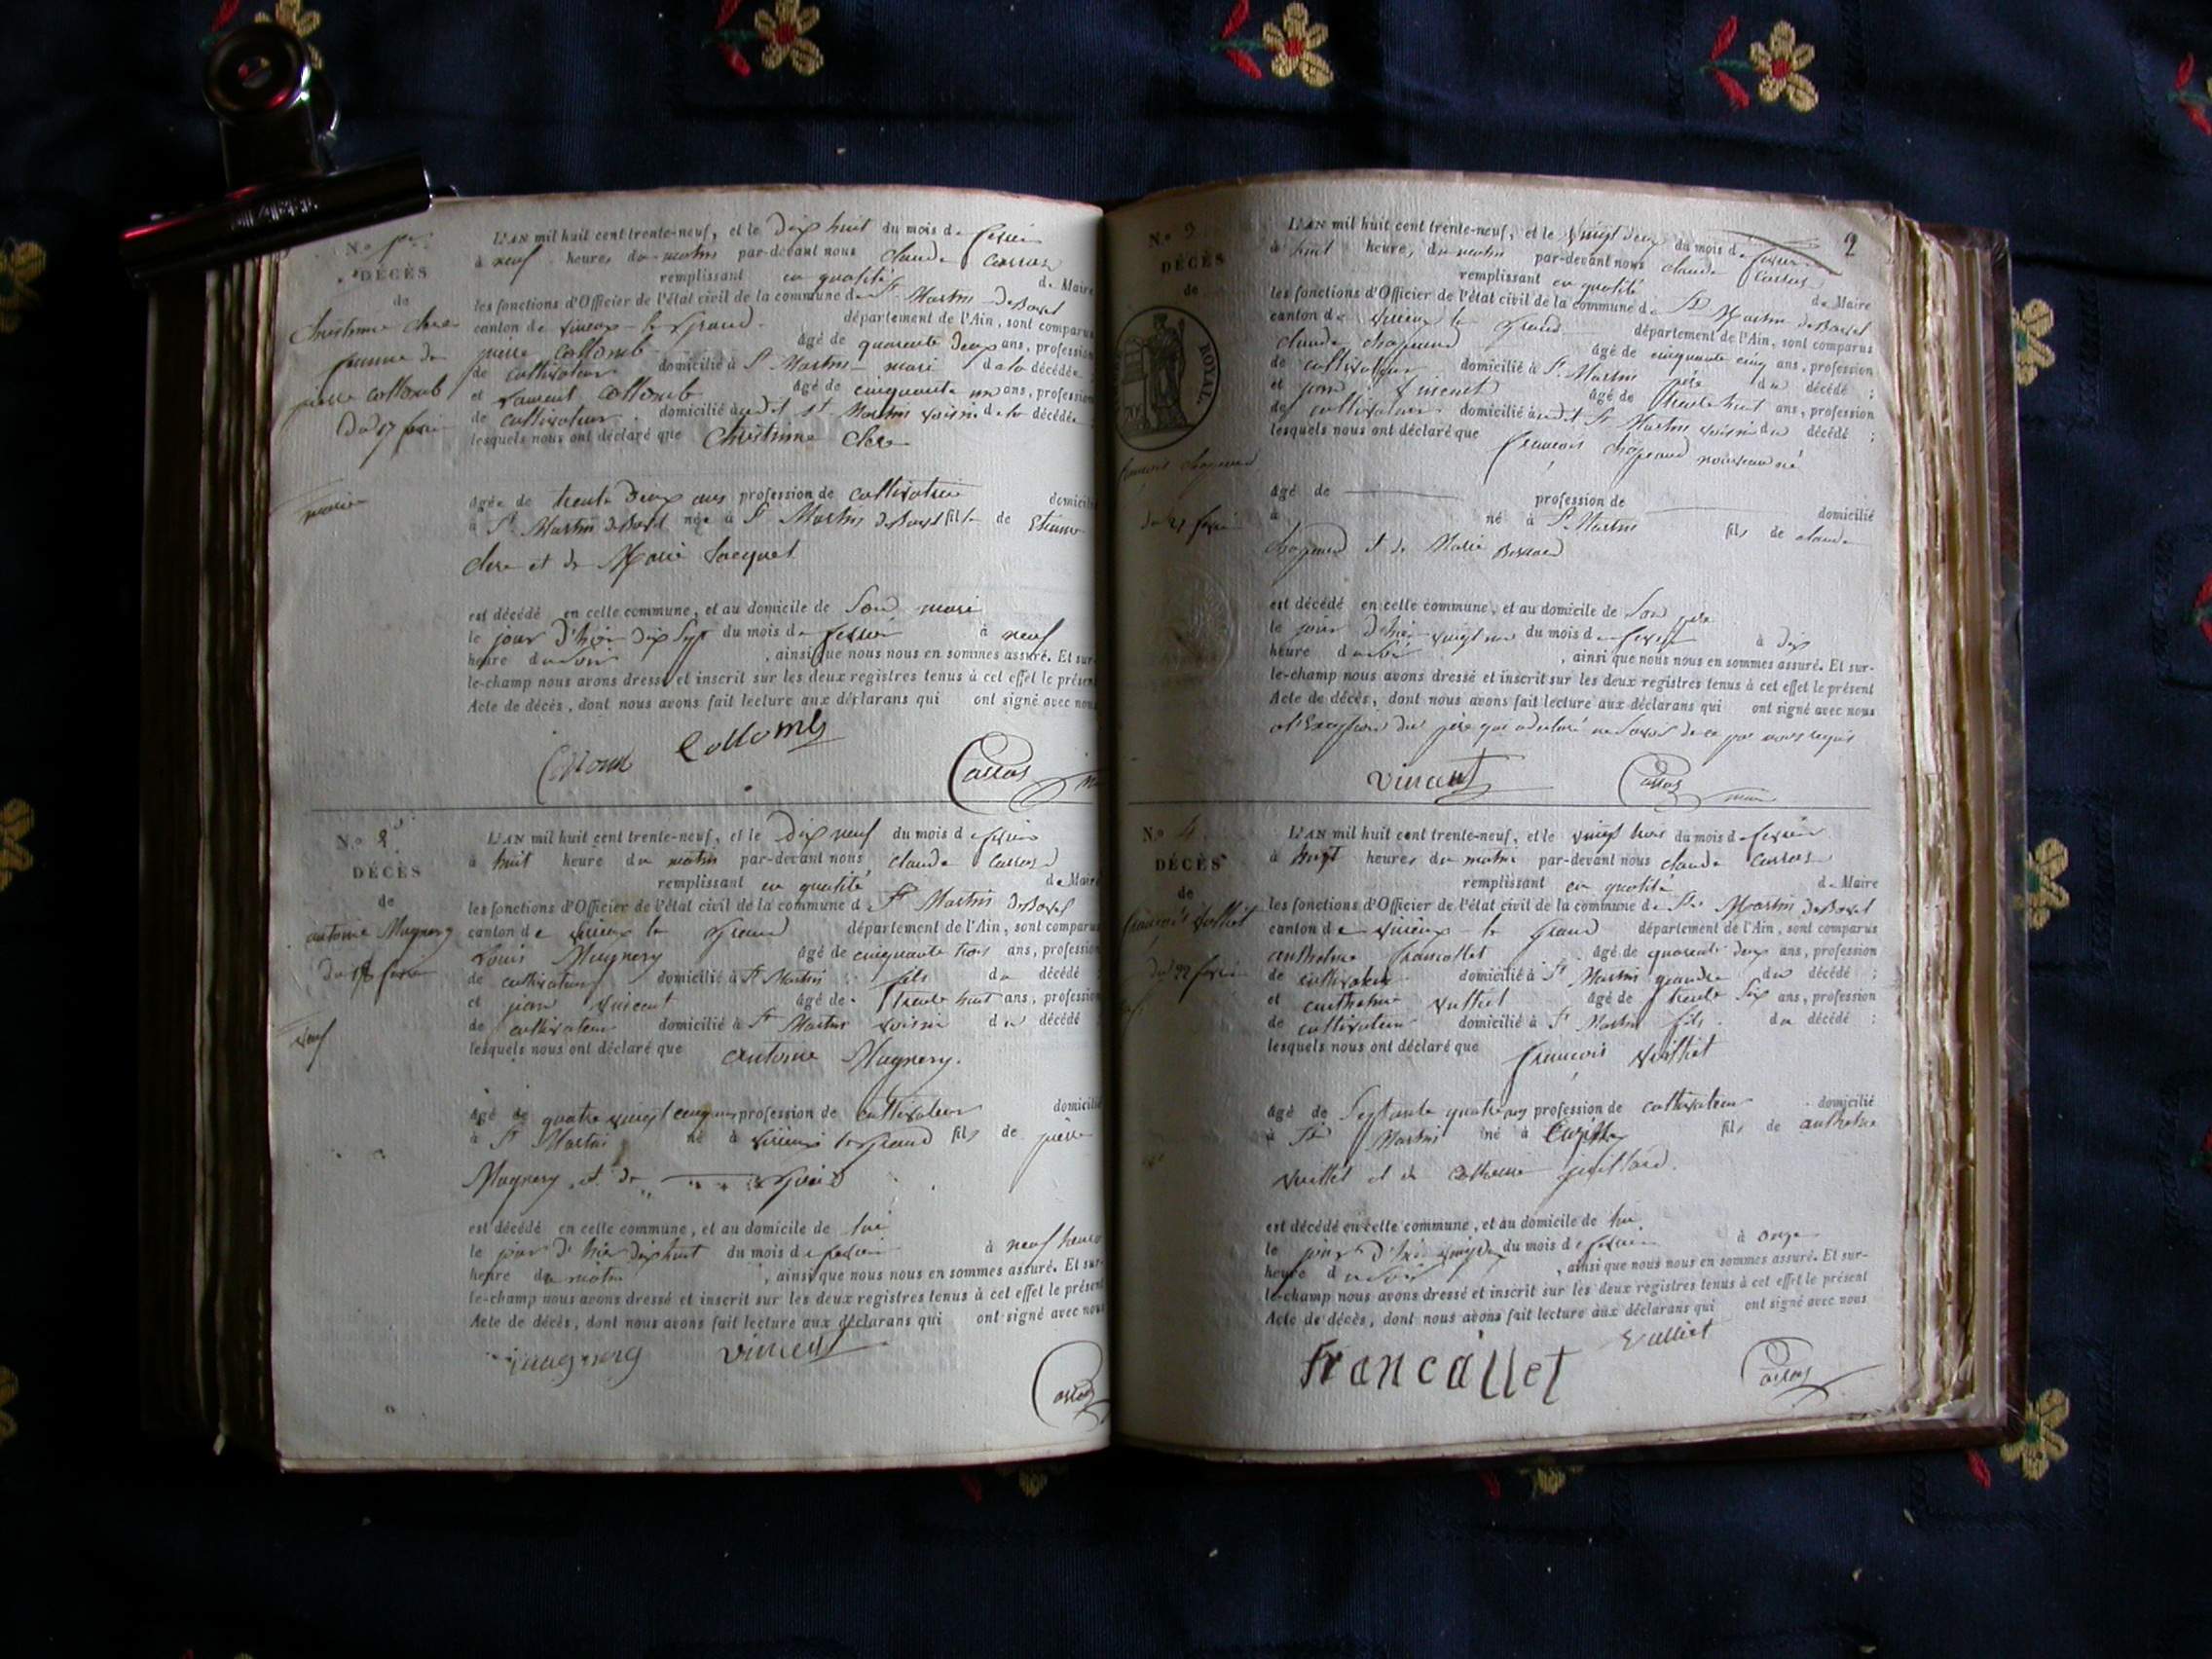 N.o 1er
DÉCÈS
de
Christinne Clerc
femme de
pierre Collomb
du 17 février
mariée
L'AN mil huit cent trente-neuf, et le dix huit du mois de février
à neuf heures du matin par-devant nous Claude Carras
remplissant en qualité de Maire
les fonctions d'Officier de l'état civil de la commune de St Martin de Bavel
canton de virieux-le-grand département de l'Ain, sont comparus
pierre Collomb âgé de quarante deux ans, profession
de cultivateur domicilié à St Martin mari de la décédée
et Laurent Collomb âgé de cinquante un ans, profession
de cultivateur domicilié audit St Martin voisin de la décédée
lesquels nous ont déclaré que Christinne Clerc
âgée de trente deux ans profession de cultivatrice domicilié
à St Martin de Bavel née à St Martin de Bavel fille de Etienne
Clerc et de Marie Jacquet
est décédé en cette commune, et au domicile de son mari
le jour d'hier dix sept du mois de février à neuf
heure du soir, ainsi que nous nous en sommes assuré. Et sur-
le-champ nous avons dressé et inscrit sur les deux registres tenus à cet effet le présent
Acte de décès, dont nous avons fait lecture aux déclarans qui ont signé avec nous
Collomb Carras
N.o 2
DÉCÈS
de
antoine Mugnery
du 18 février
veuf
L'AN mil huit cent trente-neuf, et le dix neuf du mois de février
à huit heure du matin par-devant nous Claude Carras
remplissant en qualité de Maire
les fonctions d'Officier de l'état civil de la commune de St Martin de Bavel
canton de virieux le grand département de l'Ain, sont comparus
Louis Mugnery âgé de cinquante trois ans, profession
de cultivateur domicilié à St Martin fils du décédé ;
et jean vincent âgé de trente huit ans, profession
de cultivateur domicilié à St Martin voisin du décédé
lesquels nous ont déclaré que antoine Mugnery.
âgé de quatre vingt cinq ans profession de cultivateur domicilié
à St Martin né à virieux le grand fils de pierre
Mugnery et de
est décédé en cette commune, et au domicile de lui
le jour d'hier dix huit du mois de février à neuf heures
heure du matin, ainsi que nous nous en sommes assuré. Et sur-
le-champ nous avons dressé et inscrit sur les deux registres tenus à cet effet le présent
Acte de décès, dont nous avons fait lecture aux déclarans qui ont signé avec nous
mugnery vincent
Carras
2
N.o 3
DÉCÈS
de
ROYAL.
françois chapeaud
du 21 février
L'AN mil huit cent trente-neuf, et le vingt deux du mois de février
à huit heures du matin par-devant nous Claude Carras
remplissant en qualité de Maire
les fonctions d'Officier de l'état civil de la commune de St Martin de Bavel
canton de virieux le grand département de l'Ain, sont comparus
Claude chapeaud âgé de cinquante cinq ans, profession
de cultivateur domicilié à St Martin père du décédé ;
et jean vincent âgé de trente huit ans, profession
de cultivateur domicilié audit St Martin voisin du décédé ;
lesquels nous ont déclaré que françois chapeaud nouveau né
âgé de profession de domicilié
à né à St Martin fils de claude
chapeaud et de Marie
est décédé en cette commune, et au domicile de son père
le jour d'hier vingt un du mois de février à dix
heure du soir, ainsi que nous nous en sommes assuré. Et sur-
le-champ nous avons dressé et inscrit sur les deux registres tenus à cet effet le présent
Acte de décès, dont nous avons fait lecture aux déclarans qui ont signé avec nous
à l'exception du père qui a déclaré ne savoir de ce par nous requis
vincent Carras maire
N.o 4
DÉCÈS
de
françois vulliet
du 22 février
L'AN mil huit cent trente-neuf, et le vingt trois du mois de février
à heures du matin par-devant nous Claude Carras
remplissant en qualité de Maire
les fonctions d'Officier de l'état civil de la commune de St Martin de Bavel
canton de virieux-le-grand département de l'Ain, sont comparus
anthelme francallet âgé de quarante deux ans, profession
de cultivateur domicilié à St Martin gendre du décédé ;
et anthelme vulliet âgé de trente six ans, profession
de cultivateur domicilié à St Martin fils du décédé ;
lesquels nous ont déclaré que françois vulliet
âgé de septante quatre ans profession de cultivateur domicilié
à St Martin né à fils de anthelme
vulliet et de Catherine juillard.
est décédé en cette commune, et au domicile de lui
le jour d'hier vingt deux du mois de février à onze
heure du soir, ainsi que nous nous en sommes assuré. Et sur-
le-champ nous avons dressé et inscrit sur les deux registres tenus à cet effet le présent
Acte de décès, dont nous avons fait lecture aux déclarans qui ont signé avec nous
francallet vulliet Carras